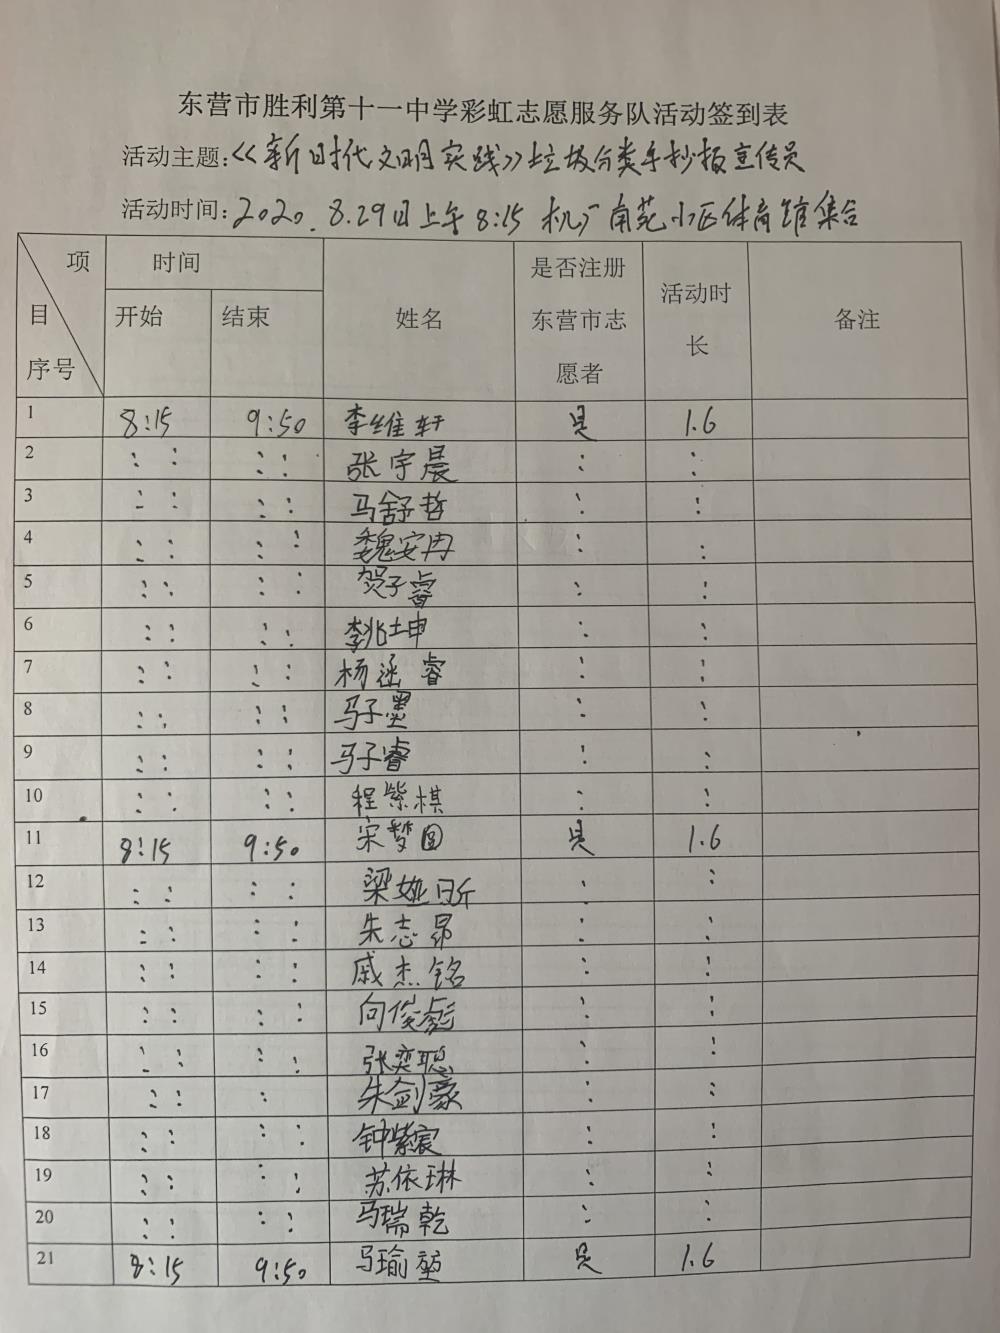 东营市胜利第十一中学彩虹志愿服务队活动签到表
活动主题:《新时代文明实践》垃圾分类手抄报宣传员
活动时间:2020.8.29日上午8:15 机厂南苑小区体育馆集合
项 目 序号 时间 姓名 是否注册东营市志愿者 活动时长 备注
开始 结束
1 8:15 9:50 李维轩 是 1.6
2 : : : : 张宇晨 : :
3 : : : : 马舒哲 : :
4 : : : : 魏安冉 : :
5 : : : : 贺子睿 : :
6 : : : : 李兆坤 : :
7 : : : : 杨涵睿 : :
8 : : : : 马子墨 : :
9 : : : : 马子睿 : :
10 : : : : 程紫棋 : :
11 8:15 9:50 宋梦圆 是 1.6
12 : : : : 梁娅昕 : :
13 : : : : 朱志昂 : :
14 : : : : 戚杰铭 : :
15 : : : : 向俊彪 : :
16 : : : : 张奕聪 : :
17 : : : 朱剑豪 : :
18 : : : : 钟紫宸 : :
19 : : : : 苏依琳 : :
20 : : : : 马瑞乾 : :
21 8:15 9:50 马瑜堃 是 1.6